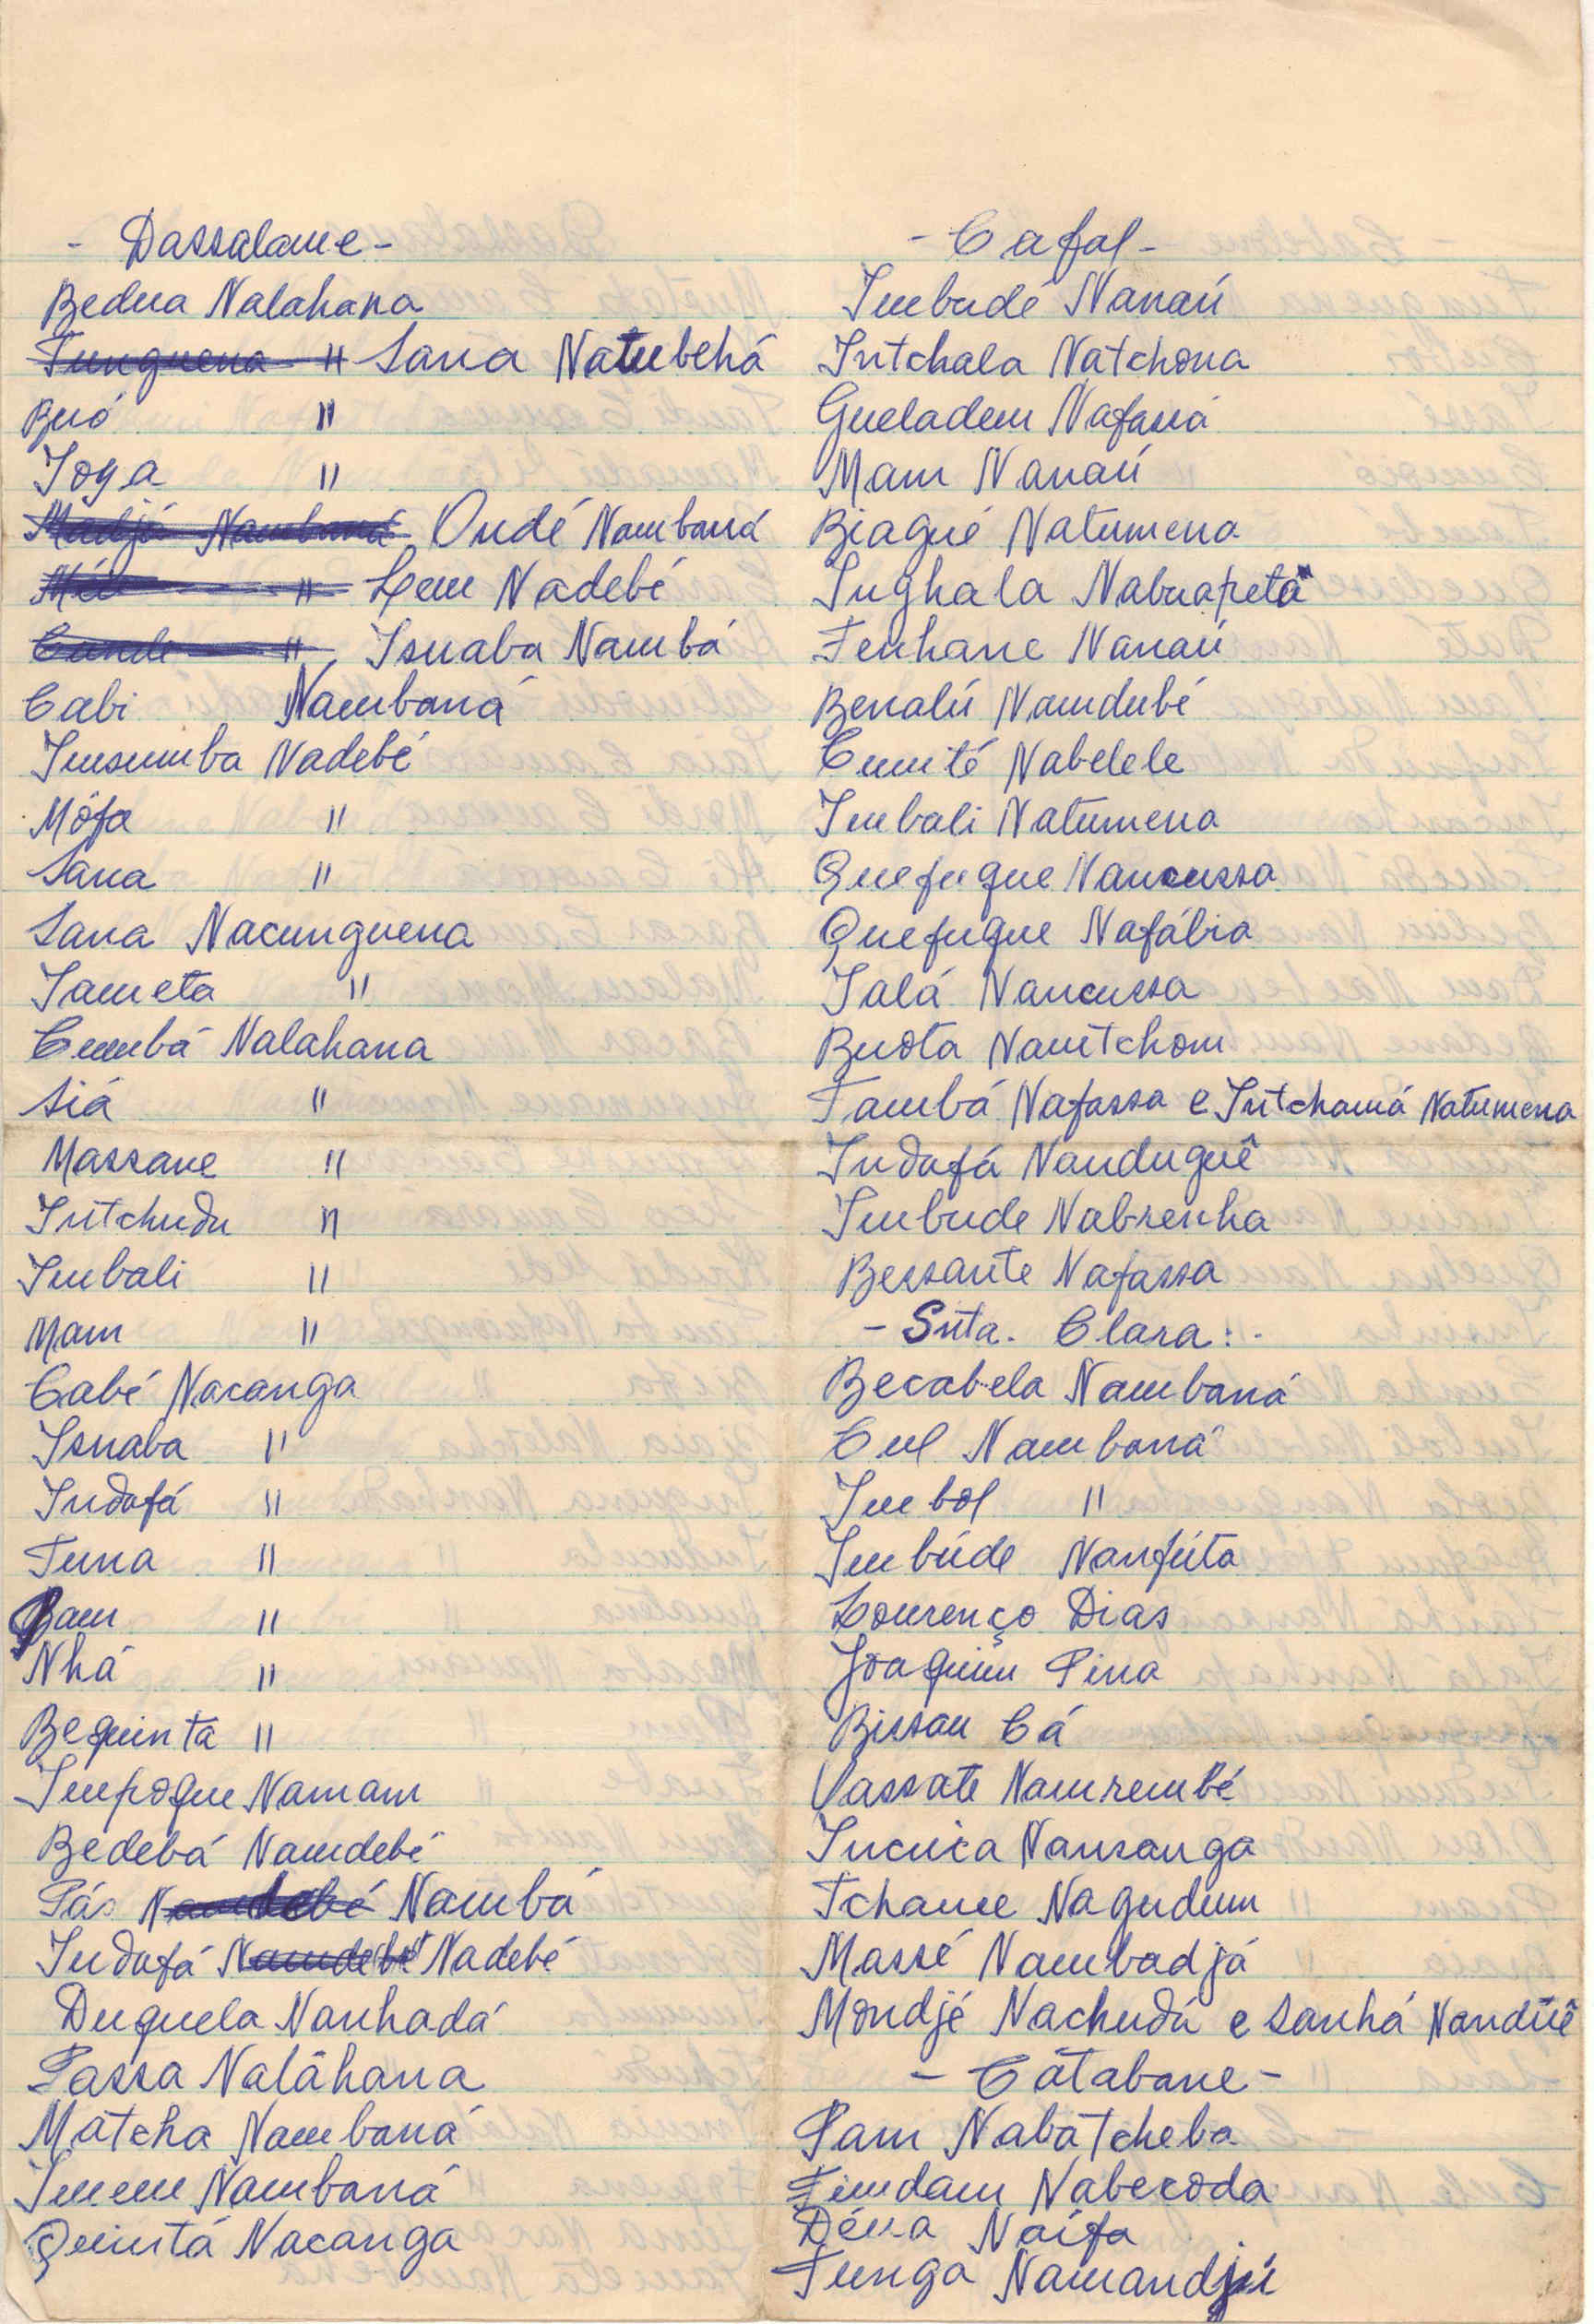 - Dassalame -
Bedua Nalahana
Tunguena " Sana Natubehá
Buó "
Ioga "
Madjá Nambaná Oudé Nambaná
" Lem Nadebé
Cunde " Isnaba Nambá
Cabi Nambaná
Imsumba Nadebé
Mófa "
Sana "
Sana Nacunguena
Iameta "
Cumbá Nalahana
Siá "
Massane "
Intchudu "
Imbali "
Mam "
Cabé Nacanga
Isnaba "
Indafá "
Tuna "
Bam "
Nhá "
Bequinta "
Impoque Namam
Bedebá Namdebé
Pás Namdebé Nambá
Indafá Namdebé Nadebé
Duquela Nanhadá
Passa Naláhana
Matcha Nambaná
Imem Nambaná
Quintá Nacanga
- Cafal -
Imbudé Nanaú
Intchala Natchona
Gueladem Nafaná
Mam Nanaú
Biagué Natumena
Inghala Nabuapetá
Fenhane Nanaú
Benalú Namdubé
Cumté Nabelele
Imbali Natumena
Quefugue Nancussa
Quefugue Nafábia
Ialá Nancussa
Buota Namtchom
Tambá Nafassa e Intchamá Natumena
Indafá Nanduguê
Imbude Nabrenha
Bessante Nafassa
- Snta. Clara: -
Becabela Nambaná
Cul Nambaná
Imbol "
Imbúde Nanfúta
Lourenço Dias
Joaquim Pina
Bissau Cá
Vassate Namrembé
Incuca Nansanga
Tchame Nagudum
Massé Nambadjá
Mondjé Nachudú e Sanhá Nanduê
- Cátabane -
Pam Nabatcheba
Timdam Nabecoda
Déna Naífa
Tunga Namandjú